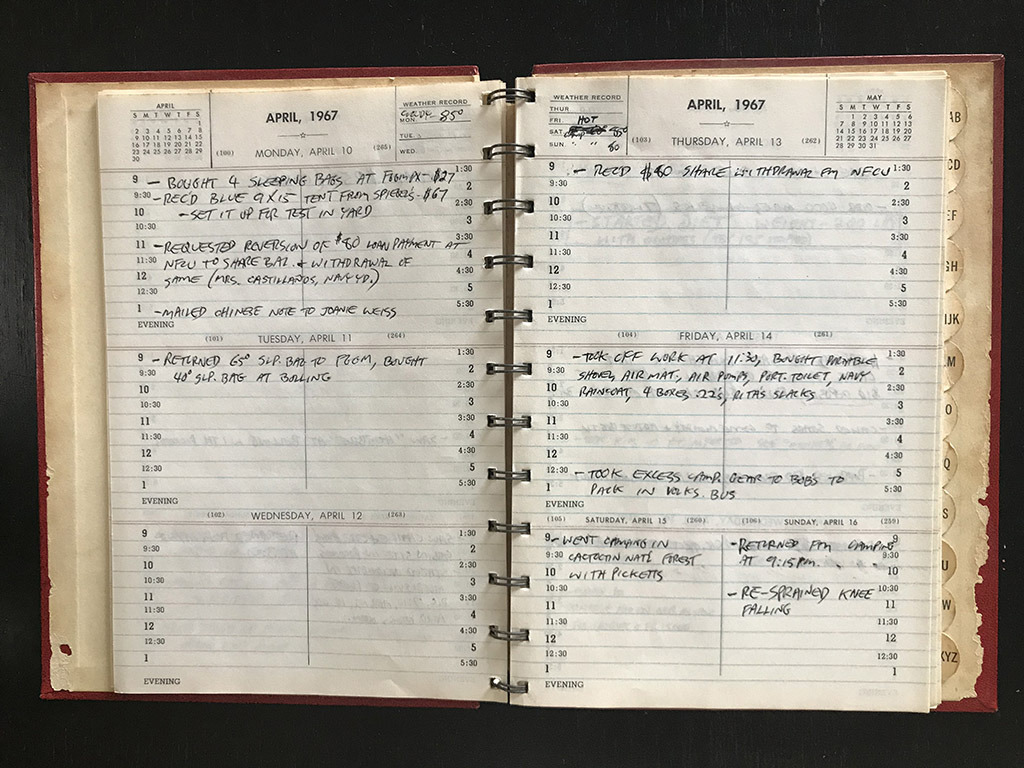 APRIL
S M T W T F S
1
2 3 4 5 6 7 8
9 10 11 12 13 14 15
16 17 18 19 20 21 22
23 24 25 26 27 28 29
30
APRIL, 1967
WEATHER RECORD
MON. 85°
TUE.
WED.
(100) MONDAY, APRIL 10 (265)
9 - BOUGHT 4 SLEEPING BAGS AT PX - $27 1:30
9:30 - REC'D BLUE 9X15 TENT FROM SPIEGELS - $67 2
10 - SET IT UP FOR TEST IN YARD 2:30
3
11 - REQUESTED REVERSION OF $80 LOAN PAYMENT AT 3:30
11:30 NFCU TO SHARE BAL. & WITHDRAWAL OF 4
12 SAME (MRS. CASTILLANOS, NAVY YD.) 4:30
12:30 5
1 - MAILED CHINESE NOTE TO JOANIE WEISS 5:30
EVENING
(101) TUESDAY, APRIL 11 (264)
9 - RETURNED 65° SLP. BAG TO FGGM, BOUGHT 1:30
9:30 40° SLP. BAG AT BOLLING 2
10 2:30
10:30 3
11 3:30
11:30 4
12 4:30
12:30 5
1 5:30
EVENING
(102) WEDNESDAY, APRIL 12 (263)
9 1:30
9:30 2
10 2:30
10:30 3
11 3:30
11:30 4
12 4:30
12:30 5
1 5:30
EVENING
WEATHER RECORD
THUR
FRI HOT
SAT 85°
SUN. " " 80
APRIL, 1967
MAY
S M T W T F S
1 2 3 4 5 6
7 8 9 10 11 12 13
14 15 16 17 18 19 20
21 22 23 24 25 26 27
28 29 30 31
(103) THURSDAY, APRIL 13 (262)
9 - REC'D $80 SHARE WITHDRAWAL FM NFCU 1:30
9:30 2
10 2:30
10:30 3
11 3:30
11:30 4
12 4:30
12:30 5
1 5:30
EVENING
(104) FRIDAY, APRIL 14 (261)
9 - TOOK OFF WORK AT 11:30, BOUGHT PORTABLE 1:30
9:30 SHOVEL, AIR MAT., AIR PUMPS, PORT. TOILET, NAVY 2
10 RAINCOAT, 4 BOXES .22S, RITAS SLACKS 2:30
10:30 3
11 3:30
11:30 4
12 4:30
12:30 - TOOK EXCESS CAMP. GEAR TO BOB'S TO 5
1 PACK IN VOLKS. BUS 5:30
EVENING
(105) SATURDAY, APRIL 15 (260)
9 - WENT CAMPING IN
9:30 CACTOCTIN NAT'L FOREST
10 WITH PICKETTS
10:30
11
11:30
12
12:30
1
EVENING
(106) SUNDAY, APRIL 16 (259)
- RETURNED FM CAMPING 9
AT 9:15 PM. 9:30
10
- RE-SPRAINED KNEE 10:30
FALLING 11
11:30
12
12:30
1
AB
CD
EF
GH
IJK
M
O
Q
S
U
W
XYZ